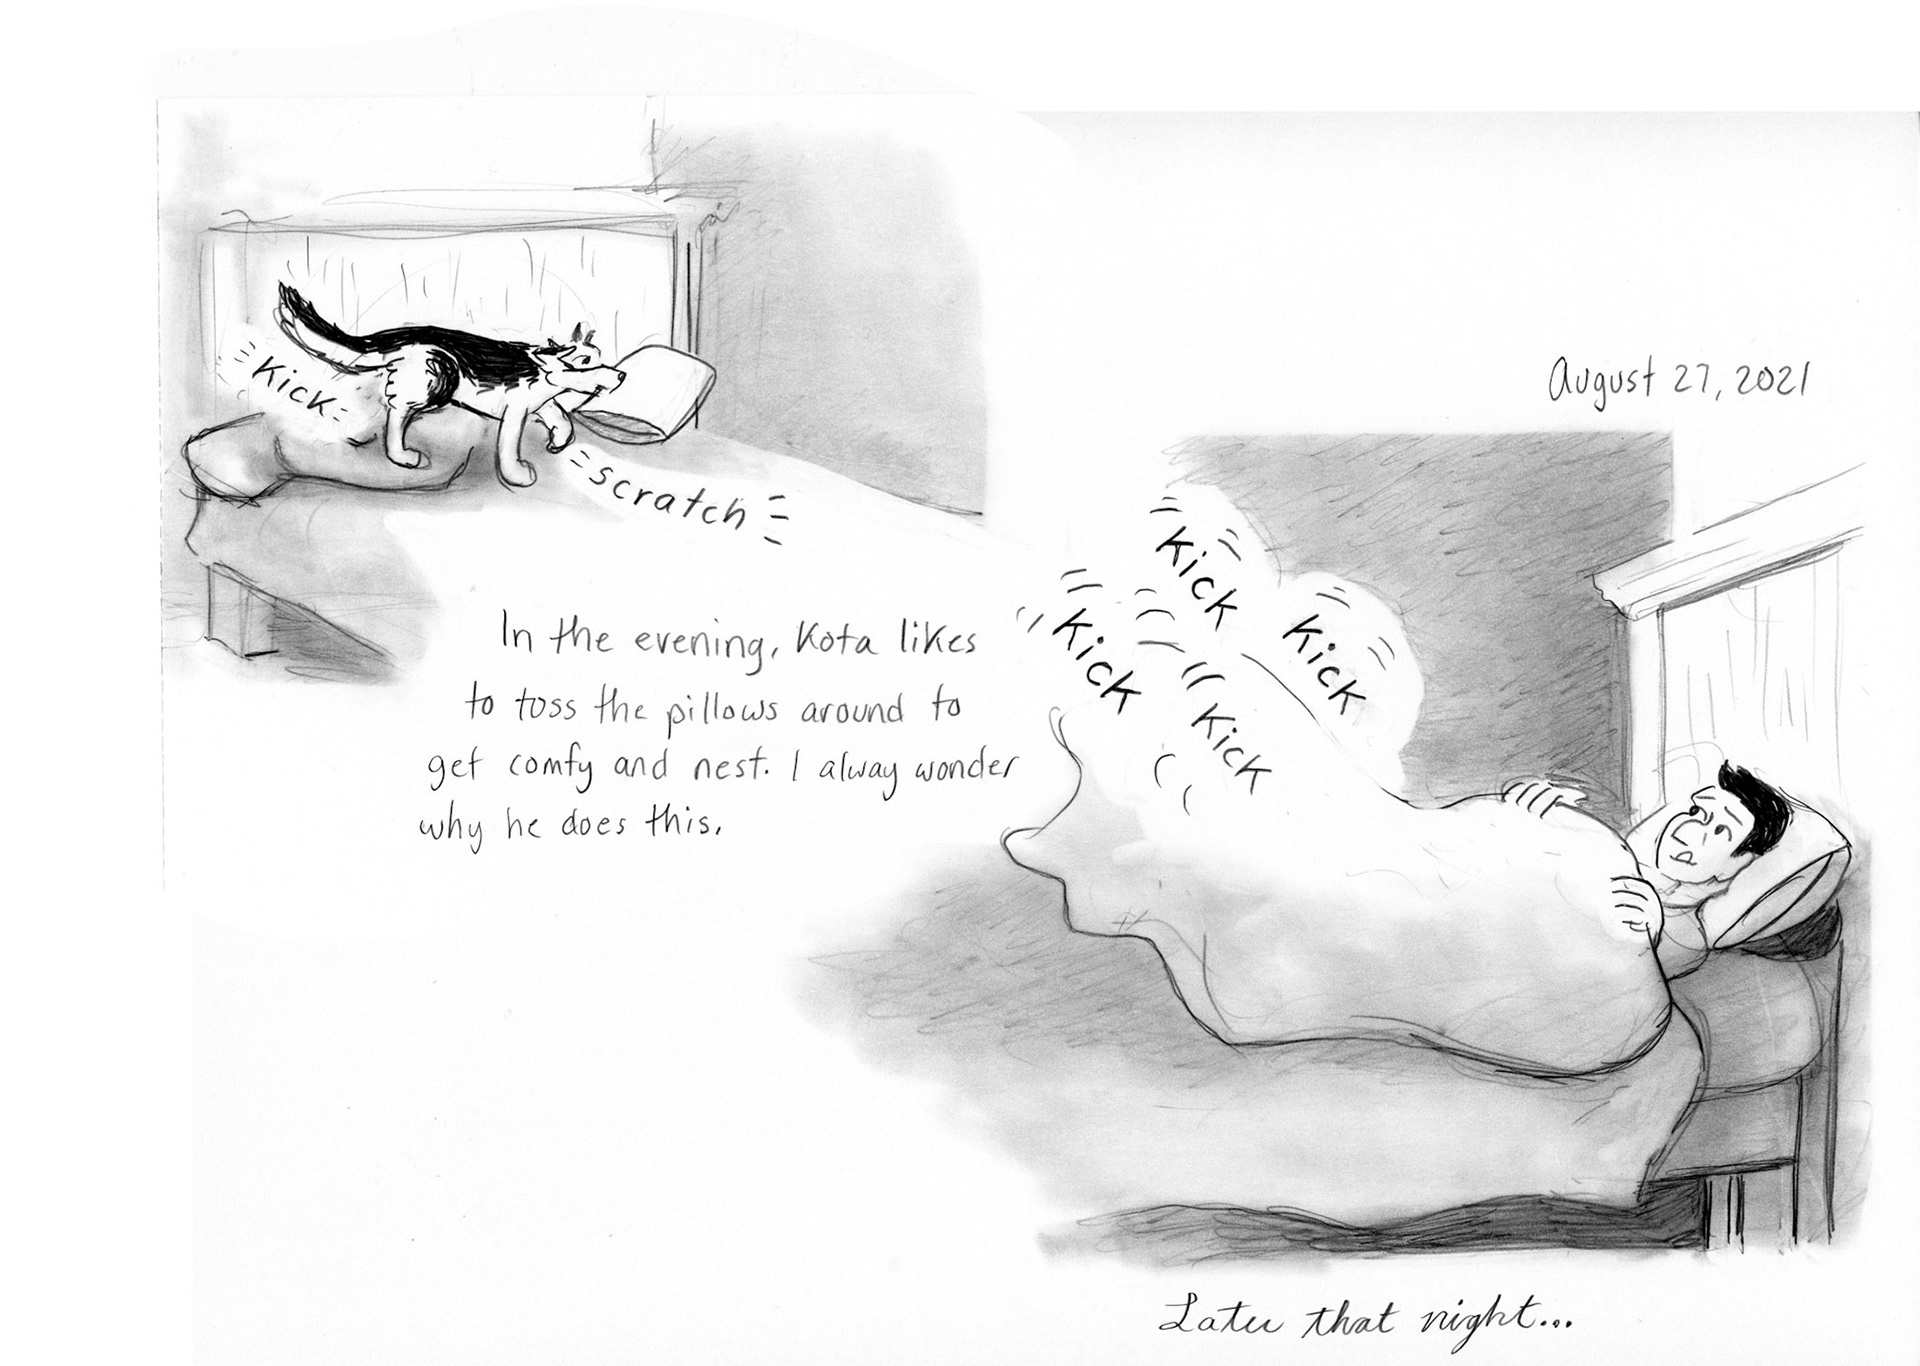 Kick
scratch
In the evening, Kota likes
to toss the pillows around to
get comfy and nest. I alway wonder
why he does this.
August 27, 2021
Kick
Kick
Kick
Kick
Later that night...